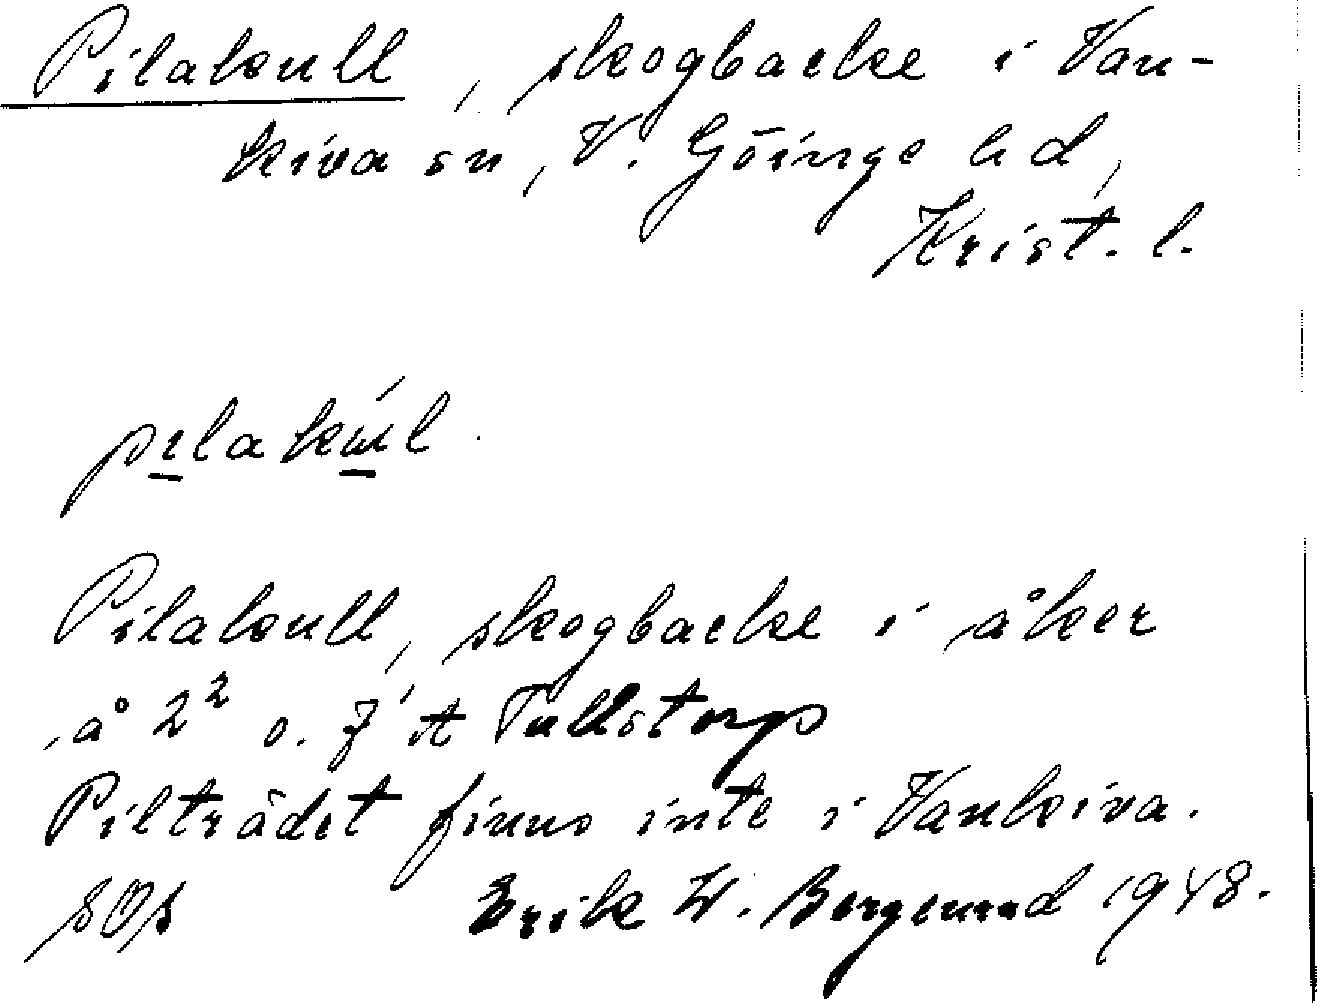 Pilakull, skogbacke i Van-
kiva sn, V. Göinge hd,
Krist. l.
pilakul.
Pilakull, skogbacke i åker
å 2² o. Tullstorp
Pilträdet finns inte i Vankiva.
Erik W. Berglund 1948.